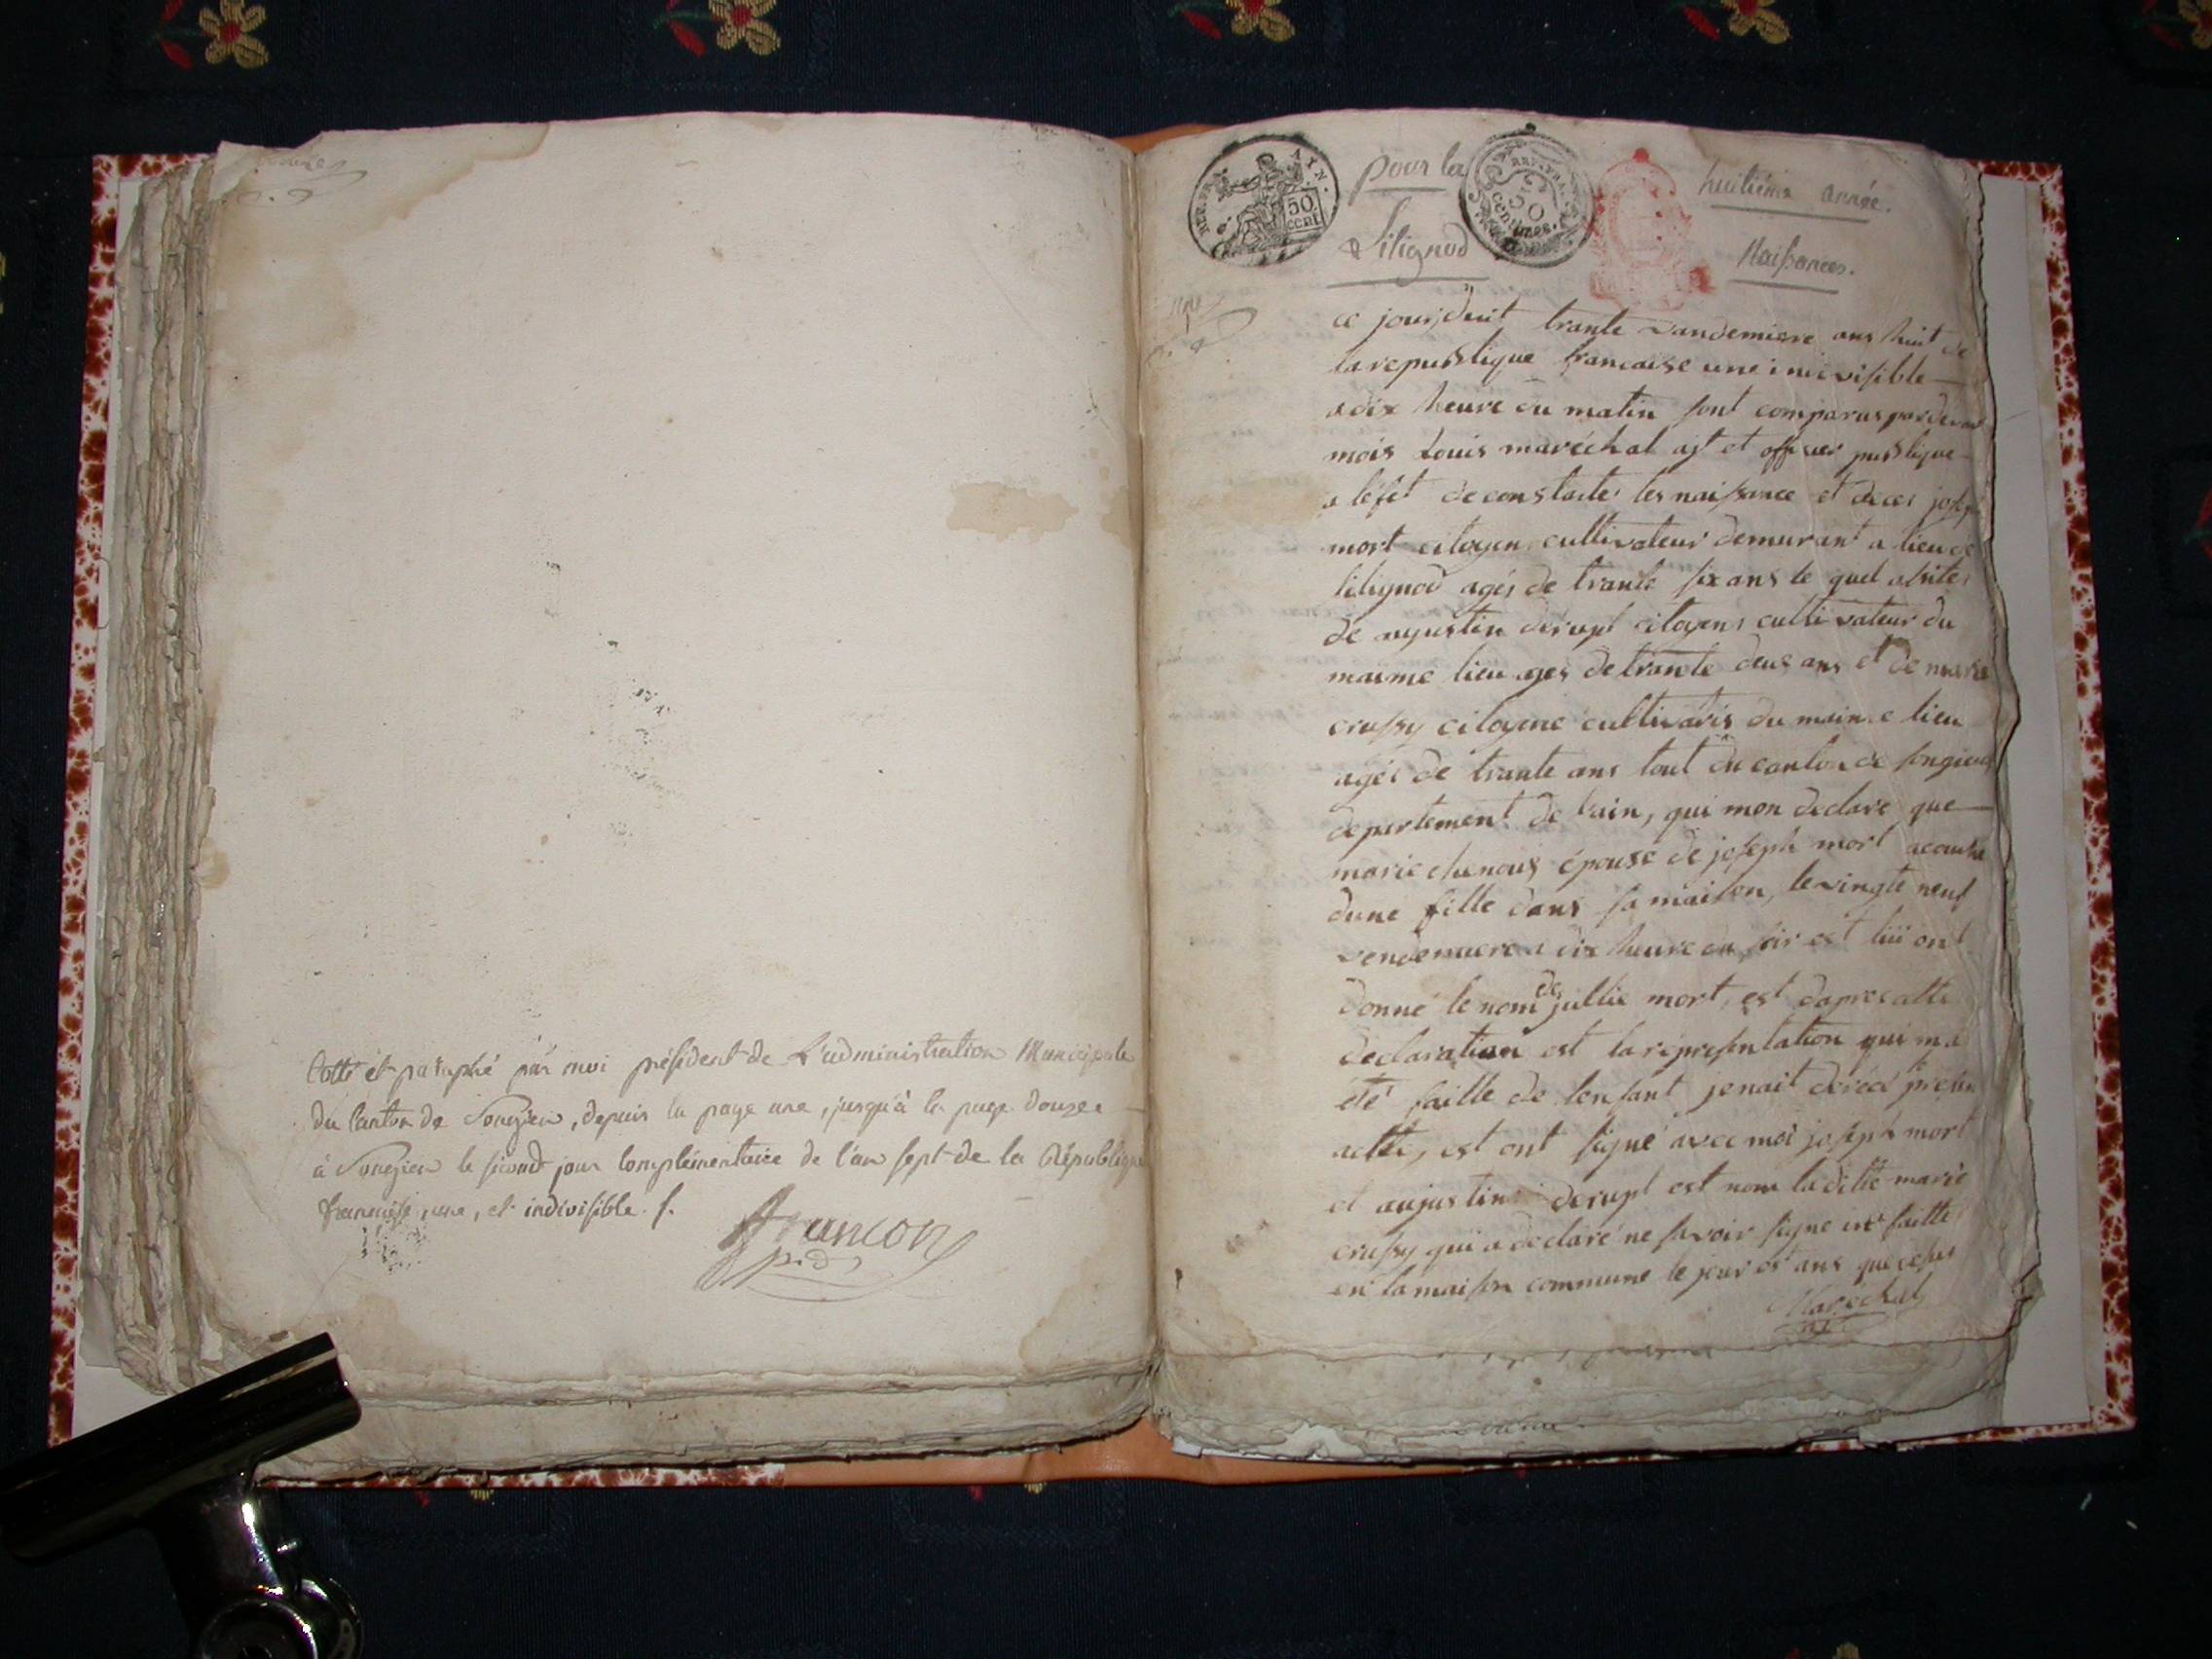 Cotté et paraphé par moi président de L'administration Municipale
du Canton de Songieu, depuis la page une, jusqu'à la page douze
à Songieu le second jour complémentaire de l'an sept de la République
francaise, une, et indivisible.
francon
pdt
REP. FRA.
AYN.
50
cent
pour la
Lilignod
REP. FRA.
50
centimes.
huitième année.
Naissances.
une
ce jourduit trante vandemiere ans huit de
la republique francaise une indivisible
a dix heure du matin sont comparus par devan
mois Louis maréchal ajt et officier publique
a léfet de constate les naissance et deces joseph
mort citoyen cultivateur demurant a lieu de
lilignod agés de trante six ans le quel
de aujustin derupt citoyens cultivateur du
maime lieu ages de trante deus ans et de marie
crussy citoyene du maime lieu
agés de trante ans tout du canton de songieu
departement de lain, qui mon declare que
marie chenous épouse de joseph mort acouche
dune fille dans sa maison, le vingte neuf
vendemiere a dix heure du soir est lüi ont
donné le nom de jullie mort, est dapres
declaration est la representation qui ma
été faitte de lenfant jenait
actte, est ont signé avec moi joseph mort
et aujustin derupt est nom la ditte marie
crussy qui a declaré ne savoir signe faitte
en la maison commune le jour et ans que
Marechal
ajt